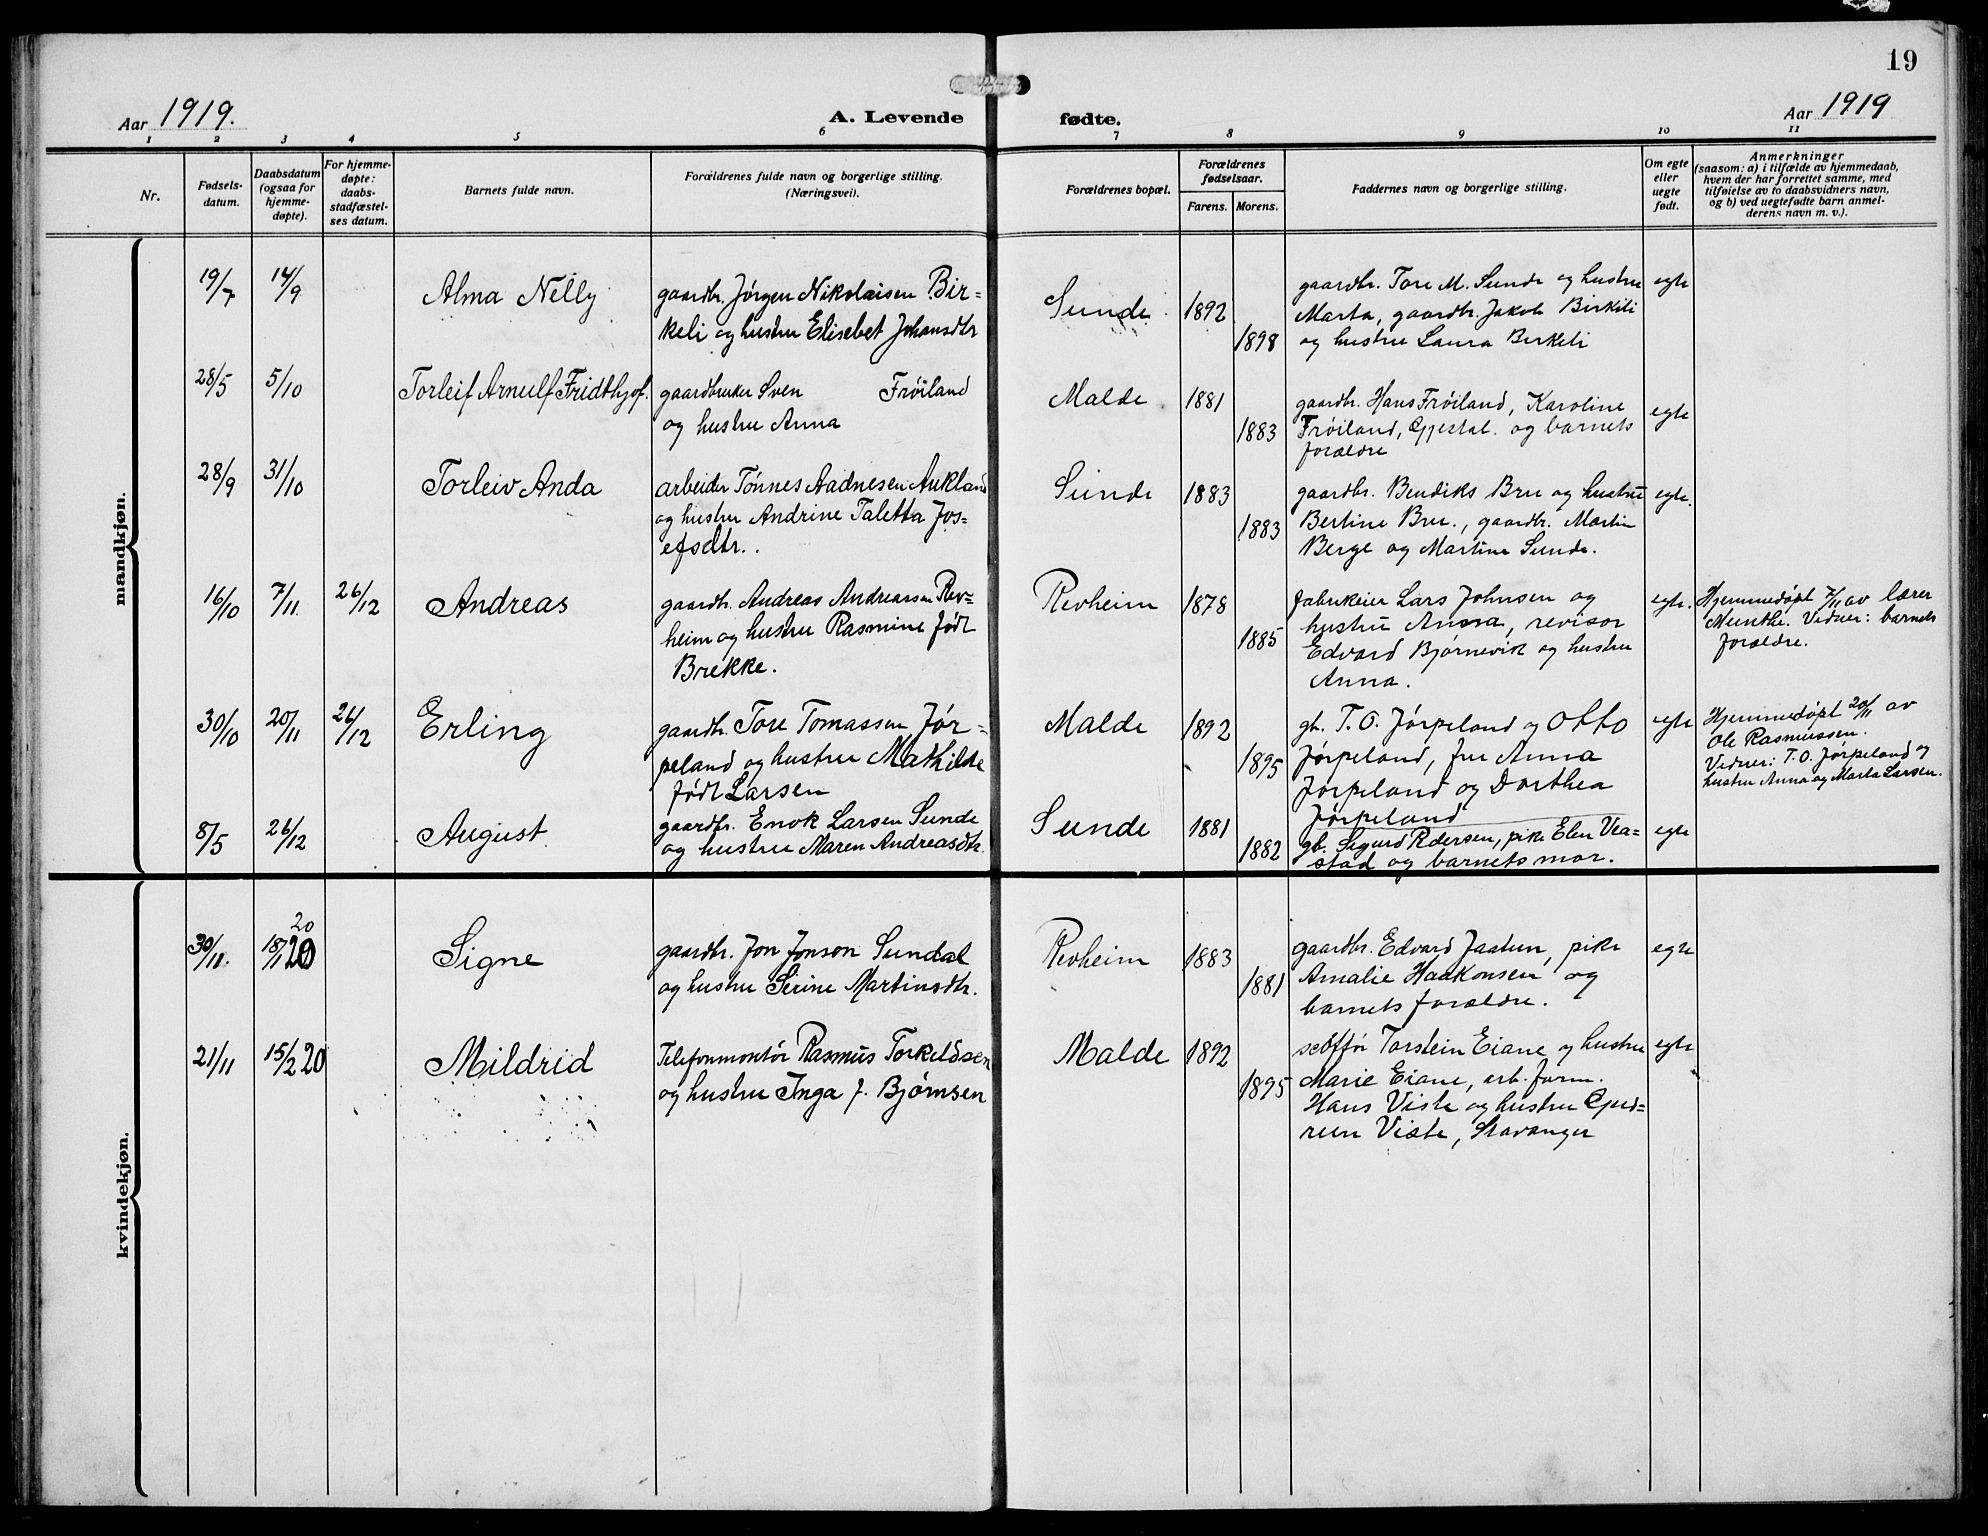 19
Aar 1919.
A. Levende fødte.
Aar 1919
1 2 3 4 5 6 7 8 9 10 11
Nr.
Fødsels-
datum.
Daabsdatum
(ogsaa for
hjemme-
døpte).
For hjemme-
døpte:
daabs-
stadfæstel-
ses datum.
Barnets fulde navn.
Forældrenes fulde navn og borgerlige stilling.
(Næringsvei).
Forældrenes bopæl.
Forældrenes
fødselsaar.
Farens. Morens.
Faddernes navn og borgerlige stilling.
Om egte
eller
uegte
født.
Anmerkninger
(saasom: a) i tilfælde av hjemmedaab,
hvem der har forrettet samme, med
tilføielse av to daabsvidners navn,
og b) ved uegtefødte barn anmel-
derens navn m. v.).
mandkjøn.
19/7 14/9 Alma Nelly
gaardbr. Jørgen Nikolaisen Bir-
keli og hustru Elisebet Johansdtr
Sunde 1892
1898
gaardbr. Tore M. Sunde og hustru
Marta, gaardbr. Jakob Birkeli
og hustru Laura Birkeli
egte
28/5 5/10 Torleif Arnulf Fridthjof.
gaardbruker Sven Frøiland
og hustru Anna
Malde 1881
1883
gaardbr. Hans Frøiland, Karoline
Frøiland, Gjestal. og barnets
forældre
egte
28/9 31/10 Torleiv Anda
arbeider Tønnes Aadnesen Aukland
og hustru Andrine Taletta Jos-
efsdtr.
Sunde 1883
1883
gaardbr. Bendiks Bru og hustru
Bertine Bru., gaardbr. Martin
Berge og Martine Sunde.
egte.
16/10 7/11 26/12 Andreas
gaardbr. Andreas Andreassen Rev-
heim og hustru Rasmine født
Brekke.
Revheim 1878
1885
fabrikeier Lars Johnsen og
hustru Anna, revisor
Edvard Bjørnevik og hustru
Anna.
egte.
Hjemmedøpt 7/11 av lærer
Munthe. Vidner: barnets
forældre.
30/10 20/11 26/12 Erling
gaardbr. Tore Tomassen Jør-
peland og hustru Mathilde
født Larsen
Malde 1892
1895
gb. T. O. Jørpeland og Otto
Jørpeland, fru Anna
Jørpeland og Dorthea
Jørpeland
egte
Hjemmedøpt 20/11 av
Ole Rasmussen.
Vidner: T. O. Jørpeland og
hustru Anna og Marta Larsen.
8/5 26/12 August
gaardbr. Enok Larsen Sunde
og hustru Maren Andreasdtr.
Sunde 1881
1882
gb. Sigurd Pedersen, pike Elen Vea-
stad og barnets mor.
egte
kvindekjøn.
20
30/11. 18/1 20 Signe
gaardbr. Jon Jonson Sundal
og hustru Serine Martinsdtr.
Revheim 1883
1881
gaardbr. Edvard Jaatun, pike
Amalie Haakonsen og
barnets forældre.
egte
21/11 15/2 20 Mildrid
Telefonmontør Rasmus Torkeldsen
og hustru Inga f. Bjørnsen
Malde 1892
1895
scoffør Torstein Eiane og hustru
Marie Eiane, arb. form.
Hans Viste og hustru Gud-
run Viste, Stavanger
egte